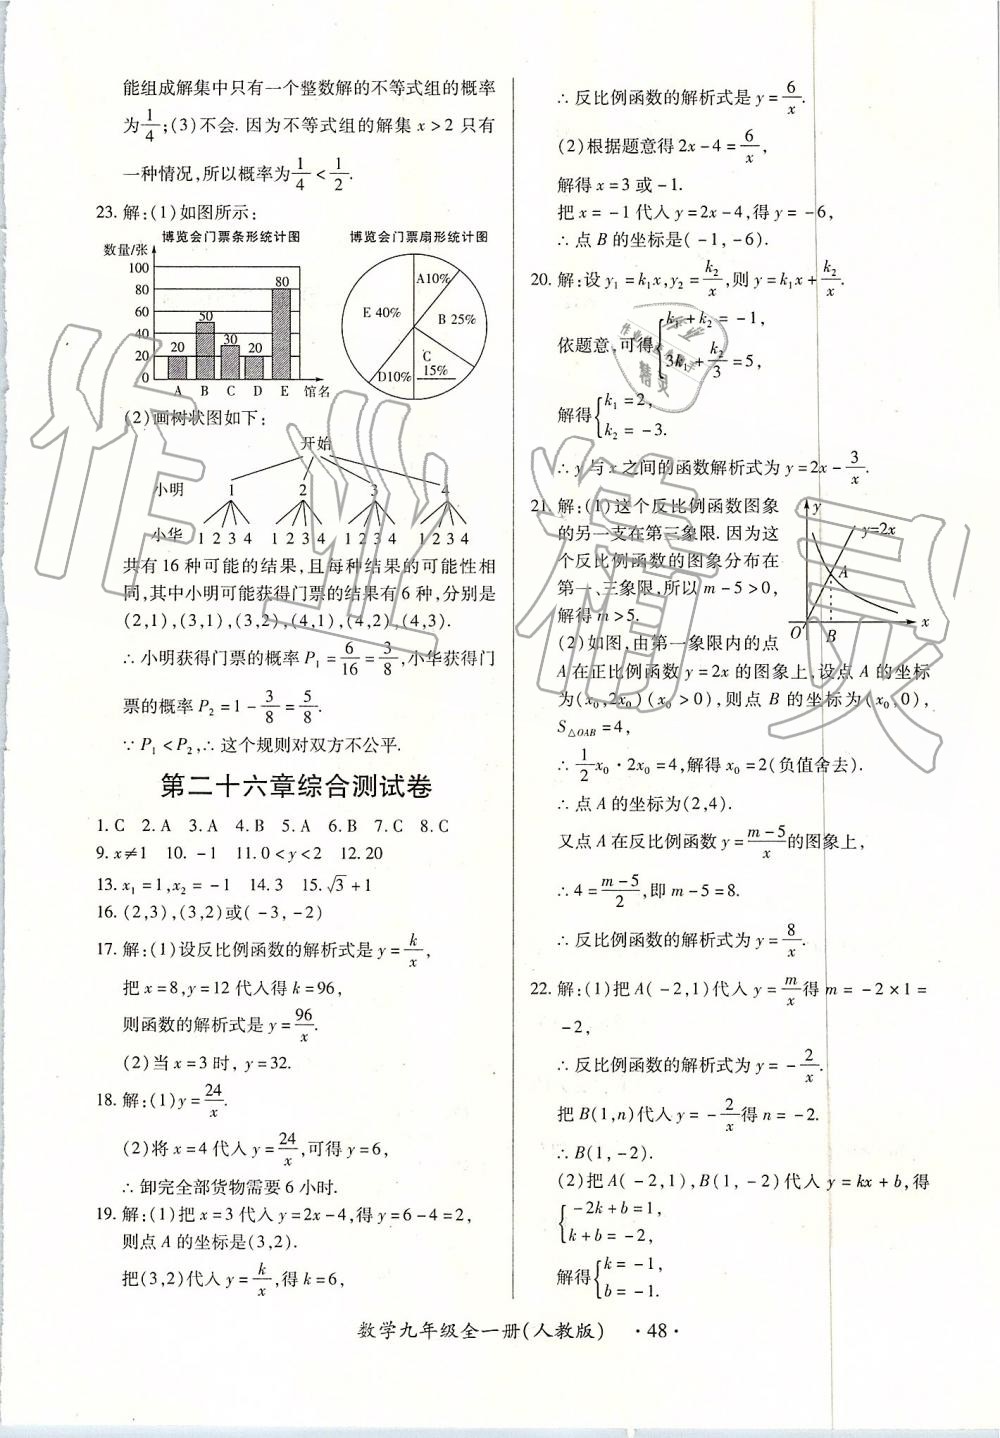 能组成解集中只有一个整数解的不等式组的概率
为1/4;(3)不会. 因为不等式组的解集 x>2 只有
一种情况,所以概率为1/4<1/2.
23. 解:(1)如图所示:
博览会门票条形统计图
数量/张
100
80
60
40
20
0
20
50
30
20
80
A B C D E 馆名
博览会门票扇形统计图
A10%
B 25%
C 15%
D10%
E 40%
(2)画树状图如下:
开始
小明 1 2 3 4
小华 1 2 3 4 1 2 3 4 1 2 3 4 1 2 3 4
共有 16 种可能的结果,且每种结果的可能性相
同,其中小明可能获得门票的结果有 6 种,分别是
(2,1),(3,1),(3,2),(4,1),(4,2),(4,3).
∴小明获得门票的概率 P₁=6/16=3/8,小华获得门
票的概率 P₂=1-3/8=5/8.
∵P₁<P₂,∴这个规则对双方不公平.
第二十六章综合测试卷
1. C 2. A 3. A 4. B 5. A 6. B 7. C 8. C
9. x≠1 10. -1 11. 0<y<2 12. 20
13. x₁=1,x₂=-1 14. 3 15. √3+1
16. (2,3),(3,2)或(-3,-2)
17. 解:(1)设反比例函数的解析式是 y=k/x,
把 x=8,y=12 代入得 k=96,
则函数的解析式是 y=96/x.
(2)当 x=3 时, y=32.
18. 解:(1)y=24/x.
(2)将 x=4 代入 y=24/x,可得 y=6,
∴卸完全部货物需要 6 小时.
19. 解:(1)把 x=3 代入 y=2x-4,得 y=6-4=2,
则点 A 的坐标是(3,2).
把(3,2)代入 y=k/x,得 k=6,
∴反比例函数的解析式是 y=6/x.
(2)根据题意得 2x-4=6/x,
解得 x=3 或-1.
把 x=-1 代入 y=2x-4,得 y=-6,
∴点 B 的坐标是(-1,-6).
20. 解:设 y₁=k₁x,y₂=k₂/x,则 y=k₁x+k₂/x.
依题意,可得{k₁+k₂=-1,
3k₁+k₂/3=5,
解得{k₁=2,
k₂=-3.
∴y 与 x 之间的函数解析式为 y=2x-3/x.
21. 解:(1)这个反比例函数图象
的另一支在第三象限. 因为这
个反比例函数的图象分布在
第一、三象限,所以 m-5>0,
解得 m>5.
y
y=2x
A
O B x
(2)如图,由第一象限内的点
A 在正比例函数 y=2x 的图象上,设点 A 的坐标
为(x₀,2x₀)(x₀>0),则点 B 的坐标为(x₀,0),
S△OAB=4,
∴1/2x₀·2x₀=4,解得 x₀=2(负值舍去).
∴点 A 的坐标为(2,4).
又点 A 在反比例函数 y=m-5/x的图象上,
∴4=m-5/2,即 m-5=8.
∴反比例函数的解析式为 y=8/x.
22. 解:(1)把 A(-2,1)代入 y=m/x得 m=-2×1=
-2,
∴反比例函数的解析式为 y=-2/x.
把 B(1,n)代入 y=-2/x得 n=-2.
∴B(1,-2).
(2)把 A(-2,1),B(1,-2)代入 y=kx+b,得
{-2k+b=1,
k+b=-2,
解得{k=-1,
b=-1.
数学九年级全一册(人教版) ·48·
作业精灵